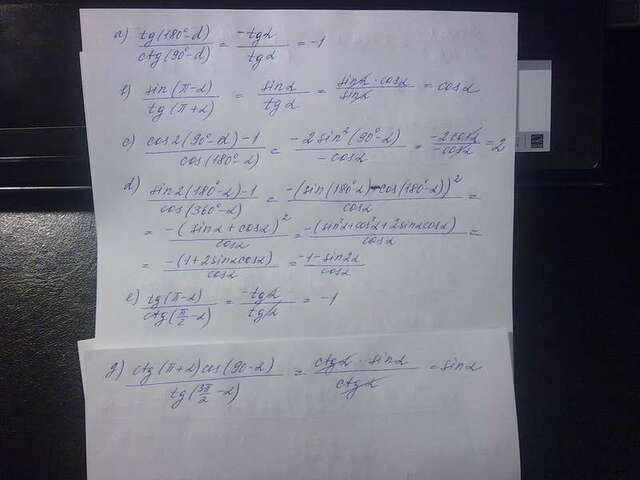 a) tg(180°-α)/ctg(90°-α) = -tgα/tgα = -1
b) sin(π-α)/tg(π+α) = sinα/tgα = sinα·cosα/sinα = cosα
c) cos2(90°-α)-1/cos(180°-α) = -2sin²(90°-α)/-cosα = -2cosα/-cosα = 2
d) sin2(180-α)-1/cos(360°-α) = -(sin(180°-α)-cos(180°-α))²/cosα =
= -(sinα+cosα)²/cosα = -(sin²α+cos²α+2sinαcosα)/cosα =
= -(1+2sinαcosα)/cosα = -1-sin2α/cosα
e) tg(π-α)/ctg(π/2-α) = -tgα/tgα = -1
g) ctg(π+α)cos(90-α)/tg(3π/2-α) = ctgα·sinα/ctgα = sinα